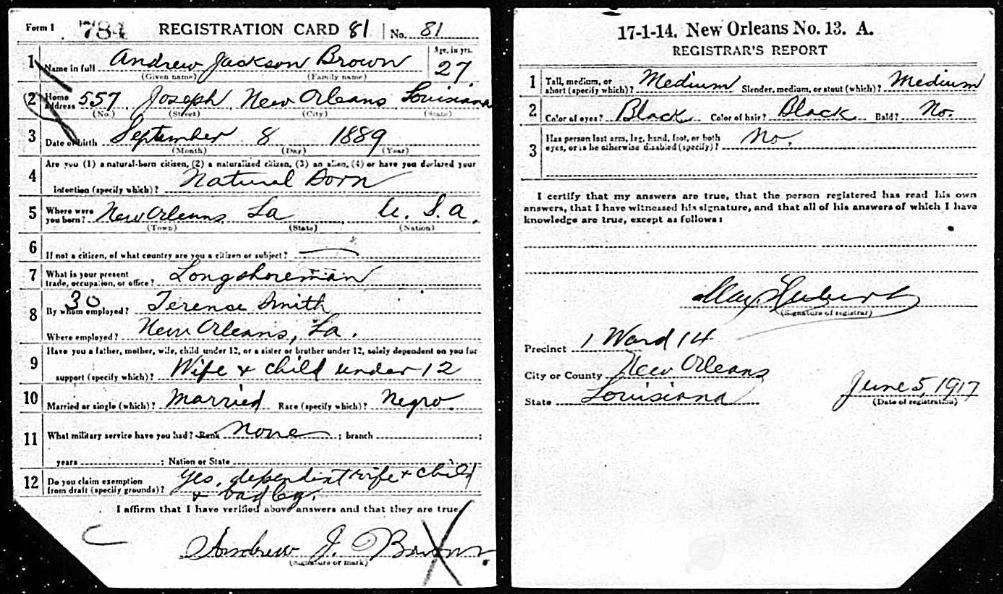 Form 1 784 REGISTRATION CARD 81 No. 81
1 Name in full Andrew Jackson Brown Age, in yrs. 27
(Given name) (Family name)
2 Home address 557 Joseph New Orleans Louisiana
(No.) (Street) (City) (State)
3 Date of birth September 8 1889
(Month) (Day) (Year)
4 Are you (1) a natural-born citizen, (2) a naturalized citizen, (3) an alien, (4) or have you declared your
intention (specify which)? Natural Born
5 Where were you born? New Orleans La U. S. A.
(Town) (State) (Nation)
6 If not a citizen, of what country are you a citizen or subject?
7 What is your present trade, occupation, or office? Longshoreman
30
8 By whom employed? Terence Smith
Where employed? New Orleans, La.
9 Have you a father, mother, wife, child under 12, or a sister or brother under 12, solely dependent on you for
support (specify which)? Wife & child under 12
10 Married or single (which)? Married Race (specify which)? Negro
11 What military service have you had? Rank None ; branch ;
years ; Nation or State
12 Do you claim exemption from draft (specify grounds)? Yes, dependent wife & child
& bad leg.
I affirm that I have verified above answers and that they are true
Andrew J. Brown
(Signature or mark)
17-1-14. New Orleans No. 13. A.
REGISTRAR'S REPORT
1 Tall, medium, or short (specify which)? Medium Slender, medium, or stout (which)? Medium
2 Color of eyes? Black Color of hair? Black Bald? No.
3 Has person lost arm, leg, hand, foot, or both
eyes, or is he otherwise disabled (specify)? No.
I certify that my answers are true, that the person registered has read his own
answers, that I have witnessed his signature, and that all of his answers of which I have
knowledge are true, except as follows:
(Signature of registrar)
Precinct 1 Ward 14
City or County New Orleans
State Louisiana June 5, 1917
(Date of registration)